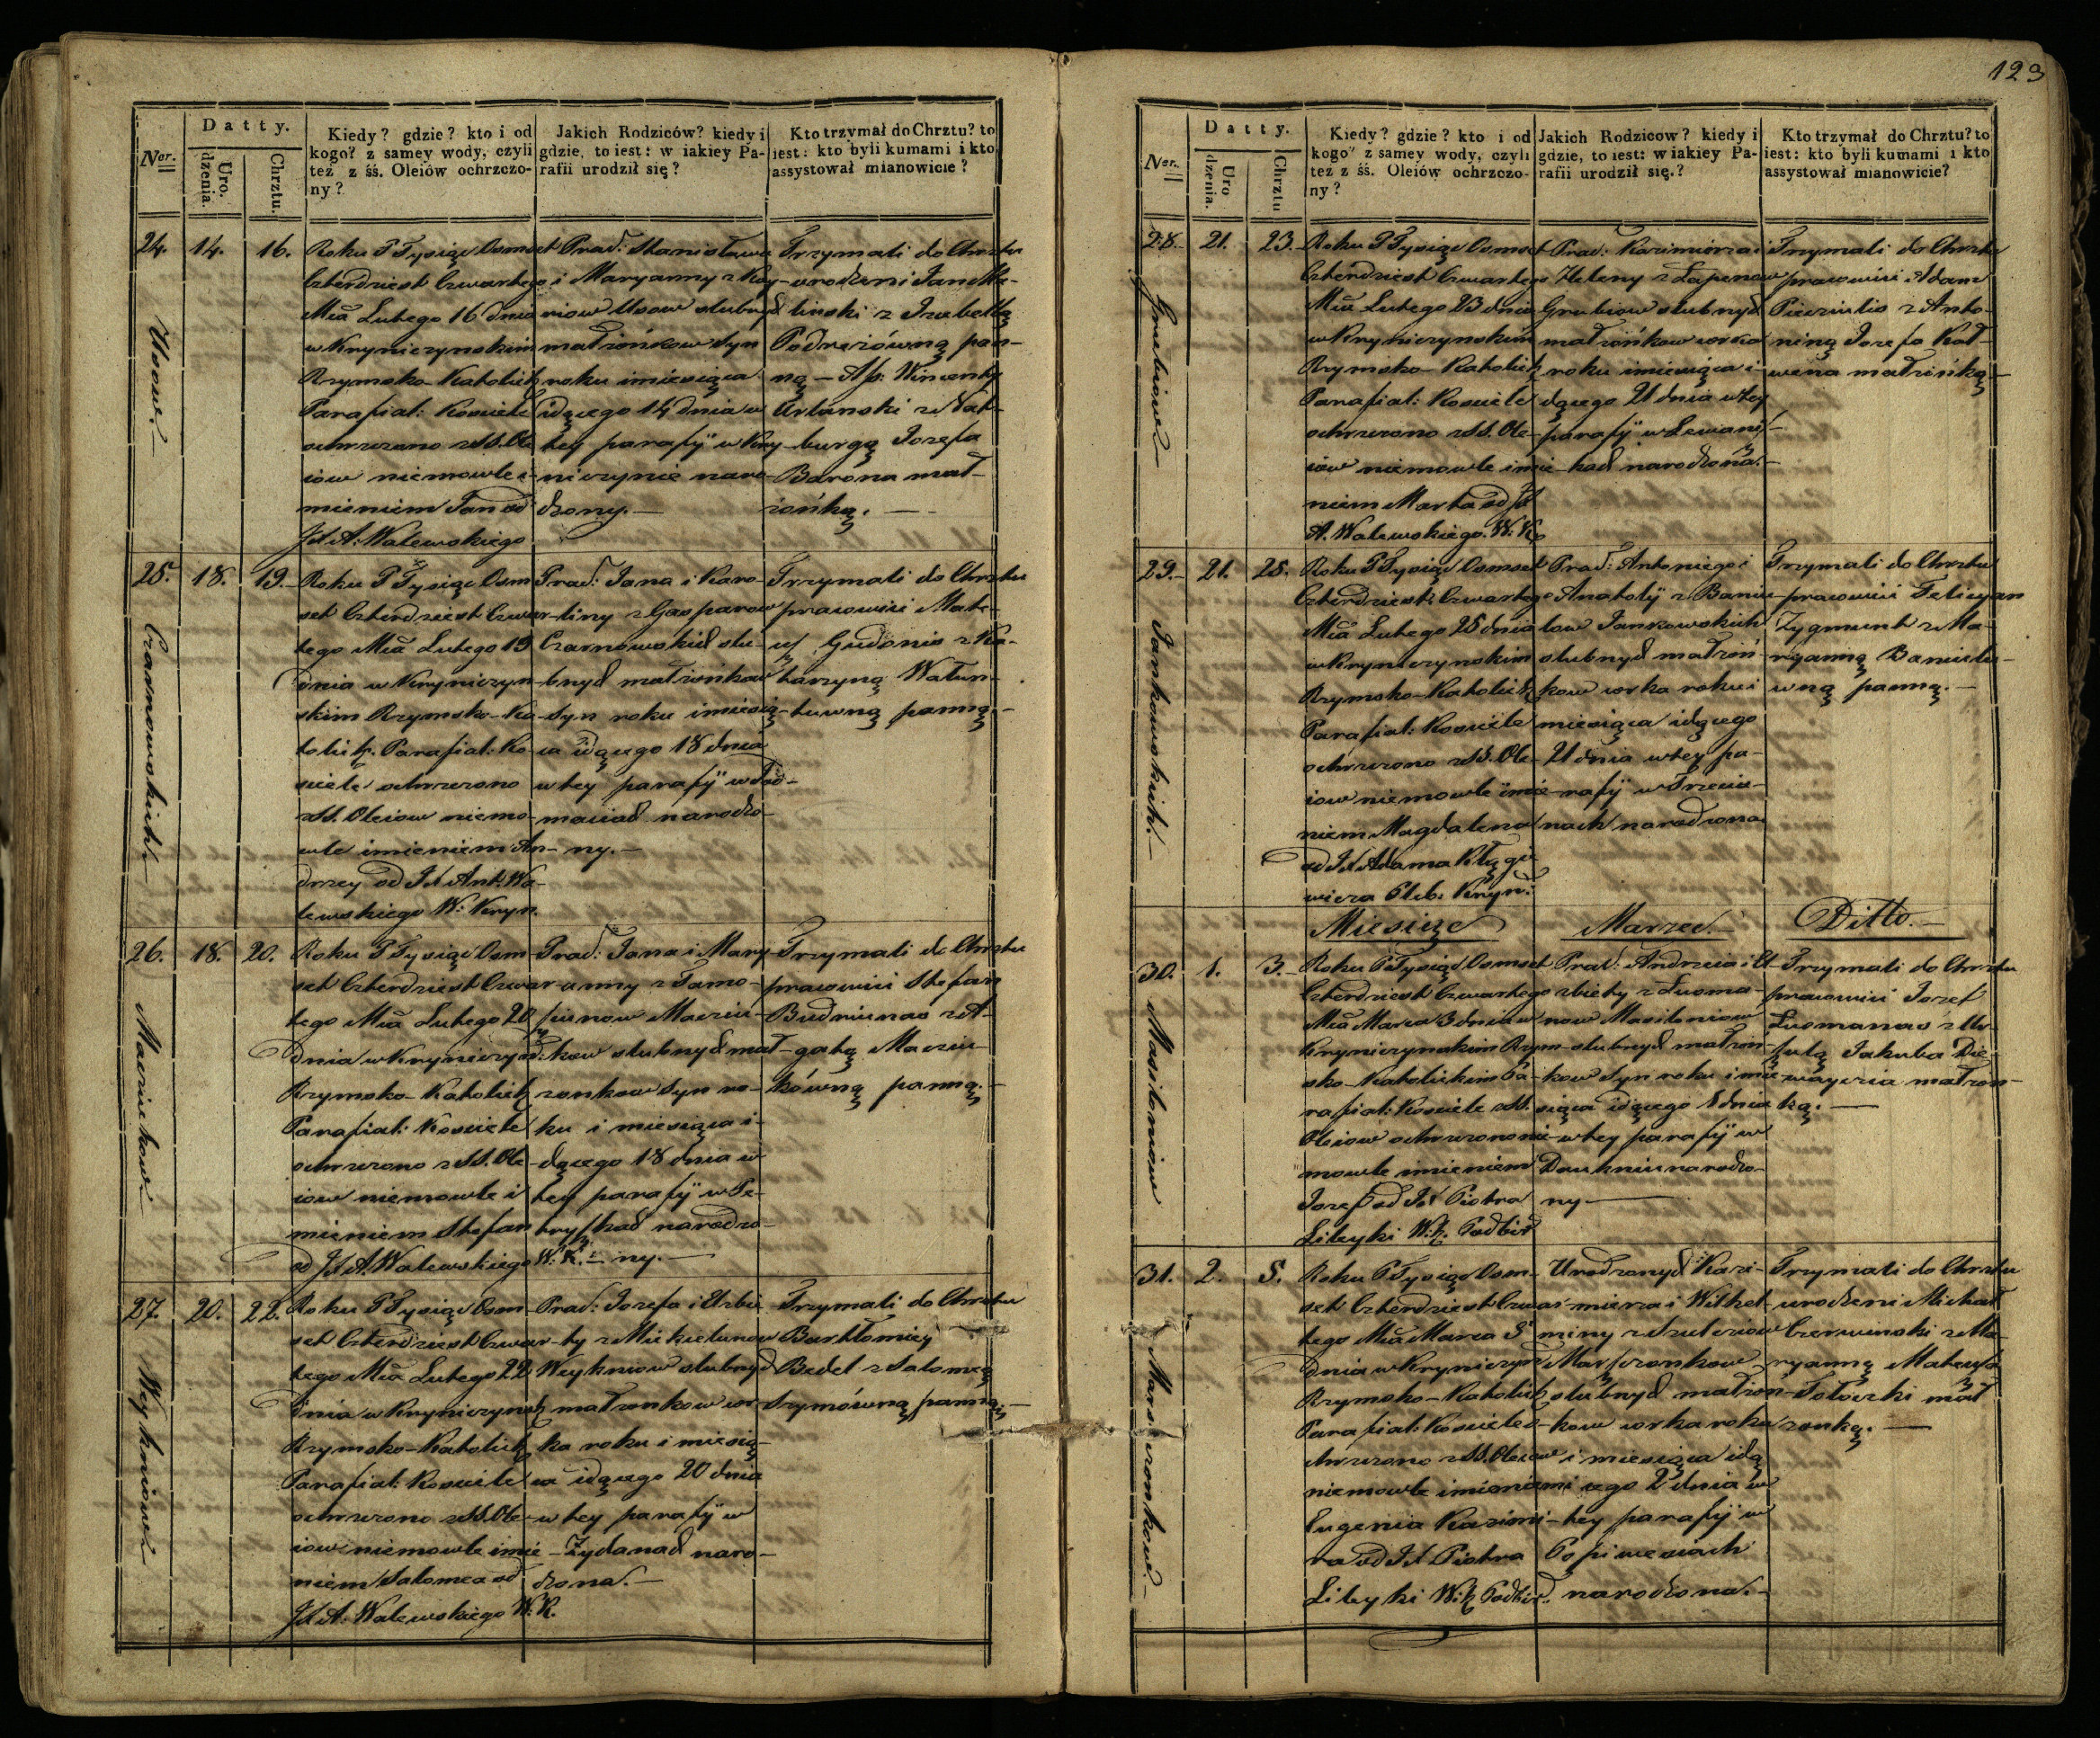 123
Datty.
Ner.
Uro.
dzenia.
Chrztu.
Kiedy? gdzie? kto i od
kogo? z samey wody, czyli
też z śś. Oleiów ochrzczo-
ny?
Jakich Rodziców? kiedy i
gdzie, to iest: w iakiey Pa-
rafii urodził się?
Kto trzymał do Chrztu? to
iest: kto byli kumami i kto
assystował mianowicie?
24. 14. 16.
Usow.
Roku P Tysiąc Osmset
Czterdziest Czwartego
Mca Lutego 16 dnia
w Kryniczynskim
Rzymsko-Katolick
Parafial: Kosciele
ochrzczono z SS. Ole
iow niemowle i-
mieniem Jan od
Jx A: Walewskiego
Prac: Stanisława
i Maryanny z Kry-
niow Usow slubnych
małżonkow Syn
roku i miesiąca
idącego 14 dnia w
tey parafij w Kry-
niczynie naro-
dzony.—
Trzymali do Chrztu
urodzeni Jan Me-
linski z Izabellą
Podreziówną pan-
ną — Ass: Wincenty
Urlanski z Wal-
burgą Jozefa
Barona mał-
żonką.—
25. 18. 19.
Czarnowskich.
Roku P Tysiąc Osm
set Czterdziest Czwar-
tego Mca Lutego 19
dnia w Kryniczyn-
skim Rzymsko-Ka-
tolick. Parafial: Ko-
sciele ochrzczono
z SS. Oleiow niemo-
wle imieniem An-
drzey od Jx Ant: Wa-
lewskiego W: Kryn.
Prac: Jana i Karo-
liny z Gasparow
Czarnowskich slu-
bnych małżonkow
Syn roku i miesią-
ca idącego 18 dnia
w tey parafij w
maciach narodzo-
ny.—
Trzymali do Chrztu
pracowici Mate-
usz Gudonis z Ka-
tarzyną Watun-
tuwną panną—
26. 18. 20.
Maciukow
Roku P Tysiąc Osm
set Czterdziest Czwar-
tego Mca Lutego 20
dnia w Kryniczyn
Rzymsko-Katolick
Parafial: Kosciele
ochrzczono z SS. Ole-
iow niemowle i
mieniem Stefan
od Jx A. Walewskiego W: K.
Prac: Jana i Mary-
anny z Tamo-
siunow Maciu-
kow slubnych mał-
zonkow Syn ro-
ku i miesiąca i-
dącego 18 dnia w
tey parafij w Pe-
tryszkach narodzo-
ny.—
Trzymali do Chrztu
pracowici Stefan
Budniunas z A-
gatą Maciu-
kówną panną.—
27. 20. 22.
Weykniow
Roku P Tysiąc Osm
set Czterdziest Czwar-
tego Mca Lutego 22
dnia w Kryniczynsk
Rzymsko-Katolick
Parafial: Kosciele
ochrzczono z SS. Ole-
iow niemowle imie-
niem Salomea od
Jx A: Walewskiego W: K.
Prac: Jozefa i Elzbie-
ty z Mikielunow
Weykniow slubnych
małżonkow cor-
ka roku i miesią-
ca idącego 20 dnia
w tey parafij w
Zydanach naro-
dzona.—
Trzymali do Chrztu
Bartłomiey
Bedel z Salomeą
Szymówną panną.—
Datty.
Ner.
Uro
dzenia.
Chrztu
Kiedy? gdzie? kto i od
kogo? z samey wody, czyli
też z śś. Oleiów ochrzczo-
ny?
Jakich Rodzicow? kiedy i
gdzie, to iest: w iakiey Pa-
rafii urodził się?
Kto trzymał do Chrztu? to
iest: kto byli kumami i kto
assystował mianowicie?
28. 21. 23.
Grubiow
Roku P Tysiąc Osmset
Czterdziest Czwartego
Mca Lutego 23 dnia
w Kryniczynskim
Rzymsko-Katolick
Parafial: Kosciele
ochrzczono z SS. Ole-
iow niemowle imie
niem Marta od Jx
A. Walewskiego. W: K.
Prac: Kazimierza i
Heleny z Łapenow
Grubiow slubnych
małżonkow corka
roku i miesiąca i-
dącego 21 dnia w tey
parafij w Lewanisz-
kach narodzona.—
Trzymali do Chrztu
pracowici Adam
Pieciulis z Anto-
niną Jozefa Koł-
wena małżonką—
29. 21. 25.
Jankowskich.
Roku P Tysiąc Osmset
Czterdziest Czwartego
Mca Lutego 25 dnia
w Kryniczynskim
Rzymsko-Katolick
Parafial: Kosciele
ochrzczono z SS. Ole-
iow niemowle imie
niem Magdalena
od Jx Adama
wicza Pleb. Kryn:
Prac: Antoniego i
Anatolij z Baniu-
low Jankowskich
slubnych małżon-
kow corka roku i
miesiąca idącego
21 dnia w tey pa-
rafij w Trzecia-
nach narodzona
Trzymali do Chrztu
pracowici Felicyan
Zygmunt z Ma-
ryanną Baniulu-
wną panną.—
Miesiąc Marzec.— Ditto.—
30. 1. 3.
Masiloniow
Roku P Tysiąc Osmset
Czterdziest Czwartego
Mca Marca 3 dnia w
Kryniczynskim Rzym-
sko-Katolickim Pa-
rafial: Kosciele z SS.
Oleiow ochrzczono nie-
mowle imieniem
Jozef od Jx Piotra
Lityki W: K. Podbir
Prac: Andrzeia i El-
zbiety z Lusma-
now Masiloniow
slubnych małzon-
kow Syn roku i mie-
siąca idącego 1 dnia
w tey parafij w
Dauknin narodzo-
ny—
Trzymali do Chrztu
pracowici Jozef
Lusmanas z Ur-
sulą Jakuba Die-
małzon-
ką.—
31. 2. 5.
Marszonkow.—
Roku P Tysiąc Osm-
set Czterdziest Czwar-
tego Mca Marca 5
dnia w Kryniczyn
Rzymsko-Katolick
Parafial: Kosciele o-
chrzczono z SS. Oleiow
niemowle imionami
Eugenia Kazimi-
ra od Jx Piotra
Lityki W: K Podbir.
Urodzonych Kazi-
mierza i Wilhel-
miny z Szulcziow
Marszonkow
slubnych małzon-
kow corka roku
i miesiąca idą
cego 2 dnia w
tey parafij w
Popiwesiach
narodzona.—
Trzymali do Chrztu
urodzeni Michał
Czerwinski z Ma-
ryanną Mateusza
Totoczki mał
zonką.—